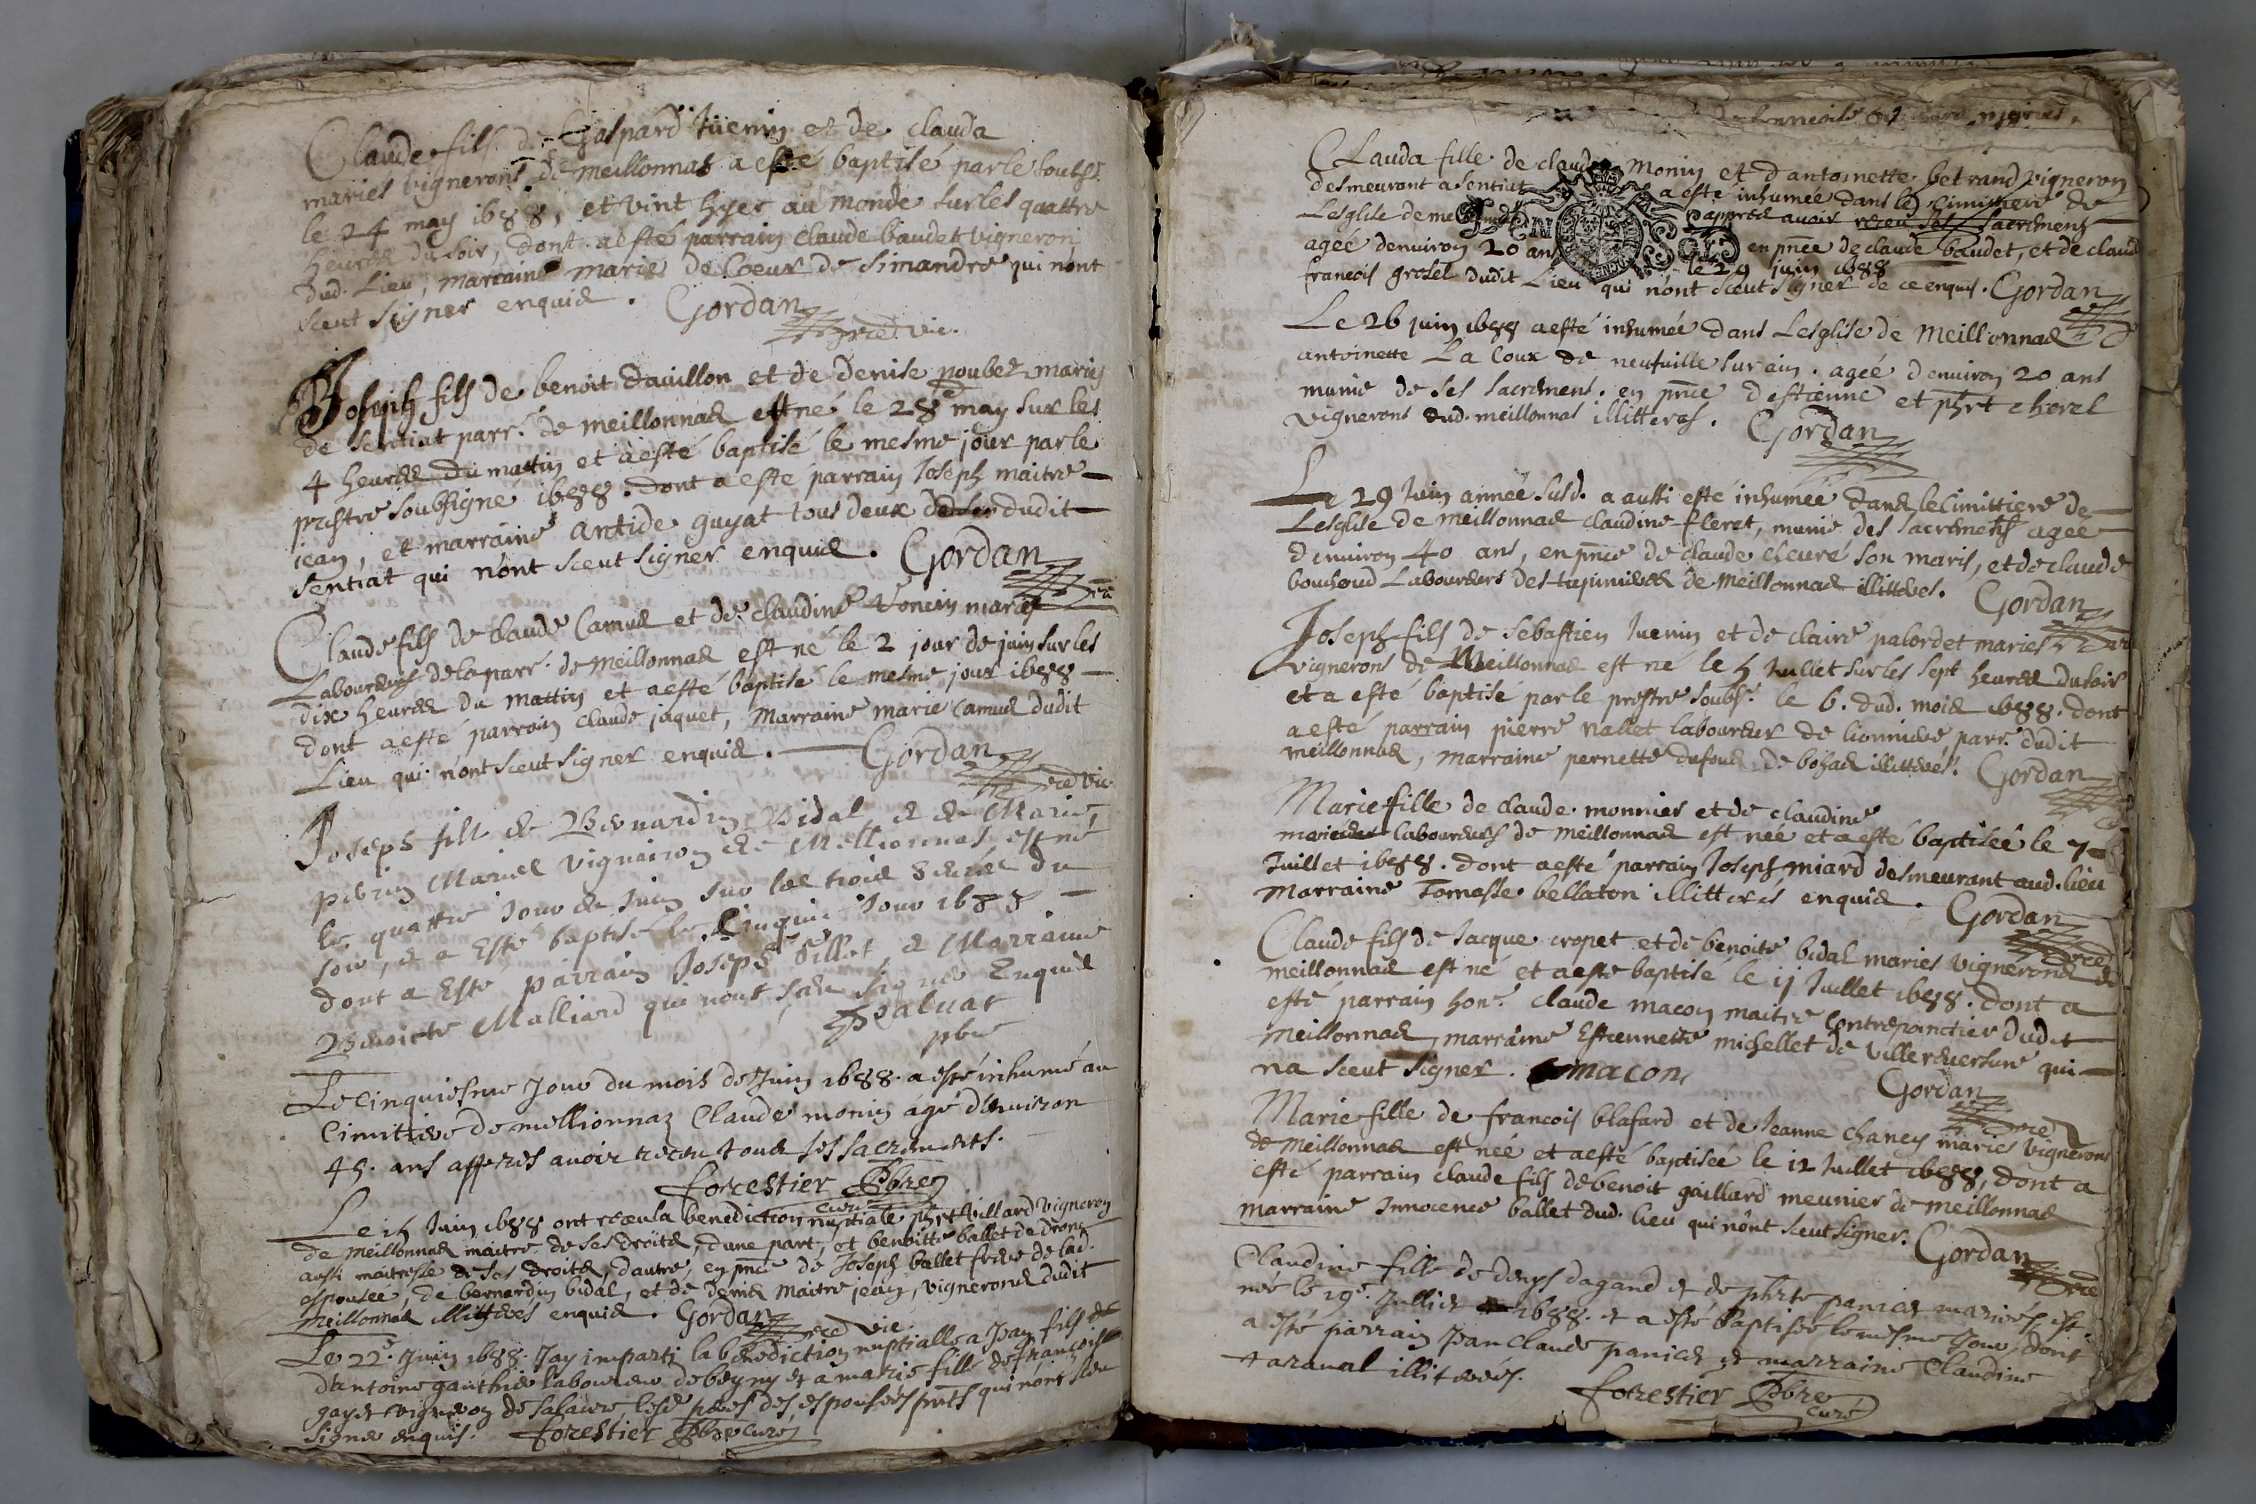 Claude fils de Gaspard Juenin et de clauda
mariés vignerons de meillonnas a esté baptisé par le soubsr.
le 24 may 1688, et vint hyer au monde sur les quattre
heures du soir, dont a esté parrain claude baudet vigneron
dud. Lieu, marraine marie de Coeur de simandre qui n'ont
sceut signer enquis. Gordan
pre vic.
Joseph fils de benoit dauillon et de denise poubet mariés
de sentiat parr. de meillonnas est né le 28e may sur les
4 heures du mattin et a esté baptisé le mesme jour par le
prestre soubsigné 1688. dont a esté parrain Joseph maitre
jean, et marraine antide guyat tous deux dudit
sentiat qui n'ont sceut signer enquis. Gordan
Claude fils de claude Camus et de claudine Voncin mariés
Laboureurs de la parr. de meillonnas est né le 2 jour de juin sur les
dix heures du mattin et a esté baptisé le mesme jour 1688
dont a esté parrain claude jaquet, Marraine marie Camus dudit
Lieu qui n'ont sceut signer enquis. Gordan
pre vic
Joseph fils de Bernardin Bidal et de Marie
pibrin Mariés vigneron de Mellionnas est né
le quattre jour de Juin sur les trois heures du
soir, et a Esté baptisé le Cinqui. Jour 1688
dont a Esté parrain Joseph Pillot, et Marraine
Benoiste Malliard qui n'ont sceu signer Enquis
pbre
Le cinquiesme Jour du mois de Juin 1688 a esté inhumé au
Cimitiere de mellionnaz Claude monin agé d'enuiron
45. ans apres auoir receu tous ses sacrements.
forestier Pbre
curé
Le 15 Juin 1688 ont receu la benediction nuptiale phrt Villard vigneron
de meillonnas maitre de ses droits, d'une part, et benoitte ballet de drom
aussi maitresse de ses droits d'autre, en pnce de Joseph ballet frere de lad.
espousee, de bernardin bidal, et de denis maitre jean, vignerons dudit
meillonnas illitteres enquis. Gordan
pre vic.
Le 22e. Juin 1688 Jay imparti la benediction nuptialle a Jean fils de
d'antoine gauthier laboureur de beyny et a marie fille de francois
gayet vigneron de salaure lesd. peres des espousés pnts qui n'ont sceu
signer enquis. forestier Pbre curé
Clauda fille de claude Monin et d'antoinette betrand vigneron
desmeurant a sentiat a esté inhumée dans le cimittiere de
Lesglise de meillonnas apprés auoir receu ses sacremens
agée denuiron 20 ans en pnce de claude baudet, et de claud
le 29 juin 1688
francois grosel dudit Lieu qui n'ont sceut signer de ce enquis. Gordan
Le 26 juin 1688 a esté inhumée dans Lesglise de Meillonnas
antoinette La Coux de neufuille sur ain. agée denuiron 20 ans
munie de ses sacremens. en pnce d'estienne et phrt chorel
vignerons dud. meillonnas illitteras. Gordan
Le 29 Juin année susd. a aussi esté inhumée dans le Cimittiere de
Lesglise de meillonnas claudine fleret, munie des sacremens agée
denuiron 40 ans, en pnce de claude cleure son maris, et de claude
bouhoud Laboureurs des tupinieres de Meillonnas illitteres. Gordan
Joseph fils de Sebastien Juenin et de claire palordet mariés
vignerons de Meillonnas est né le 5 Juillet sur les sept heures du soir
et a esté baptisé par le prestre soubsr. le 6. dud. mois 1688. dont
a esté parrain pierre vallet laboureur de lionniere parr. dudit
meillonnas, marraine pernette dufour de bohas illitteres. Gordan
Marie fille de claude monnier et de claudine
mariés laboureurs de meillonnas est née et a esté baptisée le 7
Juillet 1688. dont a esté parrain Joseph miard desmeurant aud. lieu
Marraine Tomasse bellaton illitteres enquis. Gordan
Claude fils de Jacque cropet et de benoite bidal mariés vignerons de
meillonnas est né et a esté baptisé le 11 Juillet 1688. dont a
esté parrain hon. claude macon maitre Contrepointier dudit
Meillonnas, marraine Estiennette michellet de Villereuersure qui
na sceut signer. macon
Gordan
Marie fille de francois blafard et de Jeanne Chaney mariés vignerons
de Meillonnas est née et a esté baptisée le 12 Juillet 1688, dont a
esté parrain claude fils de benoit gaillard meunier de meillonnas
marraine Innocence ballet dud. lieu qui n'ont sceut signer. Gordan
Claudine fille de denys dagand et de phrte panier mariés est
née le 19e. Julliet 1688. et a esté baptisée le mesme Jour, dont
a esté parrain Jean Claude panier et marraine Claudine
tarauel illiterés.
forestier Pbre
curé